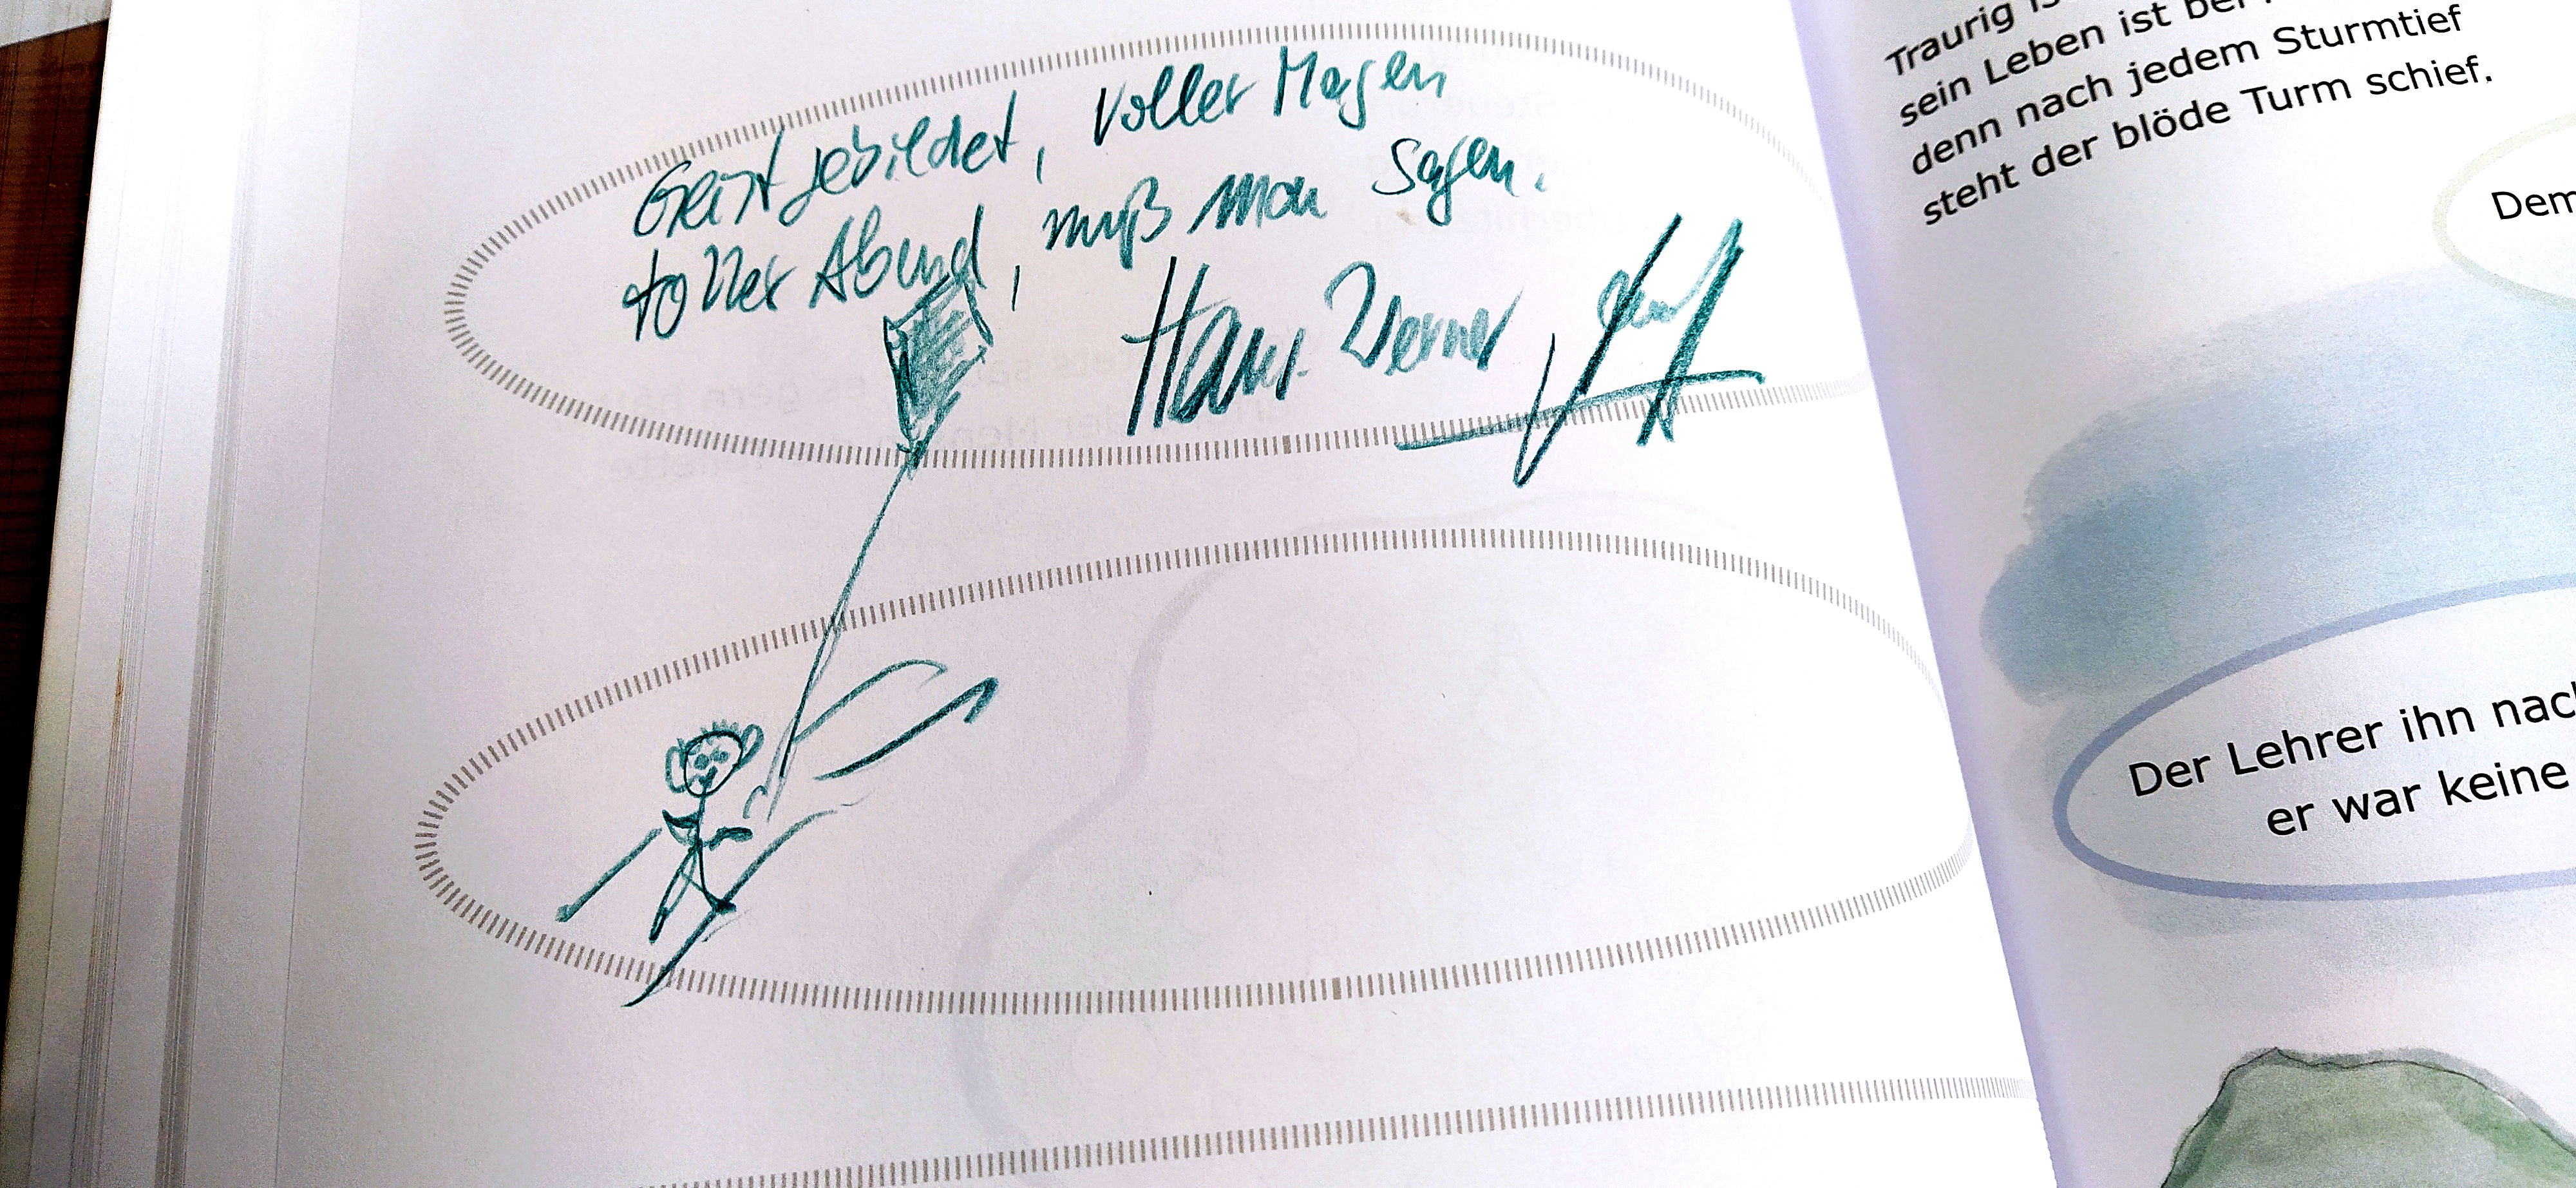 Geist gebildet, voller Magen
toller Abend, muß man sagen.
Hans-Werner
Traurig
sein Leben ist
denn nach jedem Sturmtief
steht der blöde Turm schief.
Dem
Der Lehrer ihn
er war keine